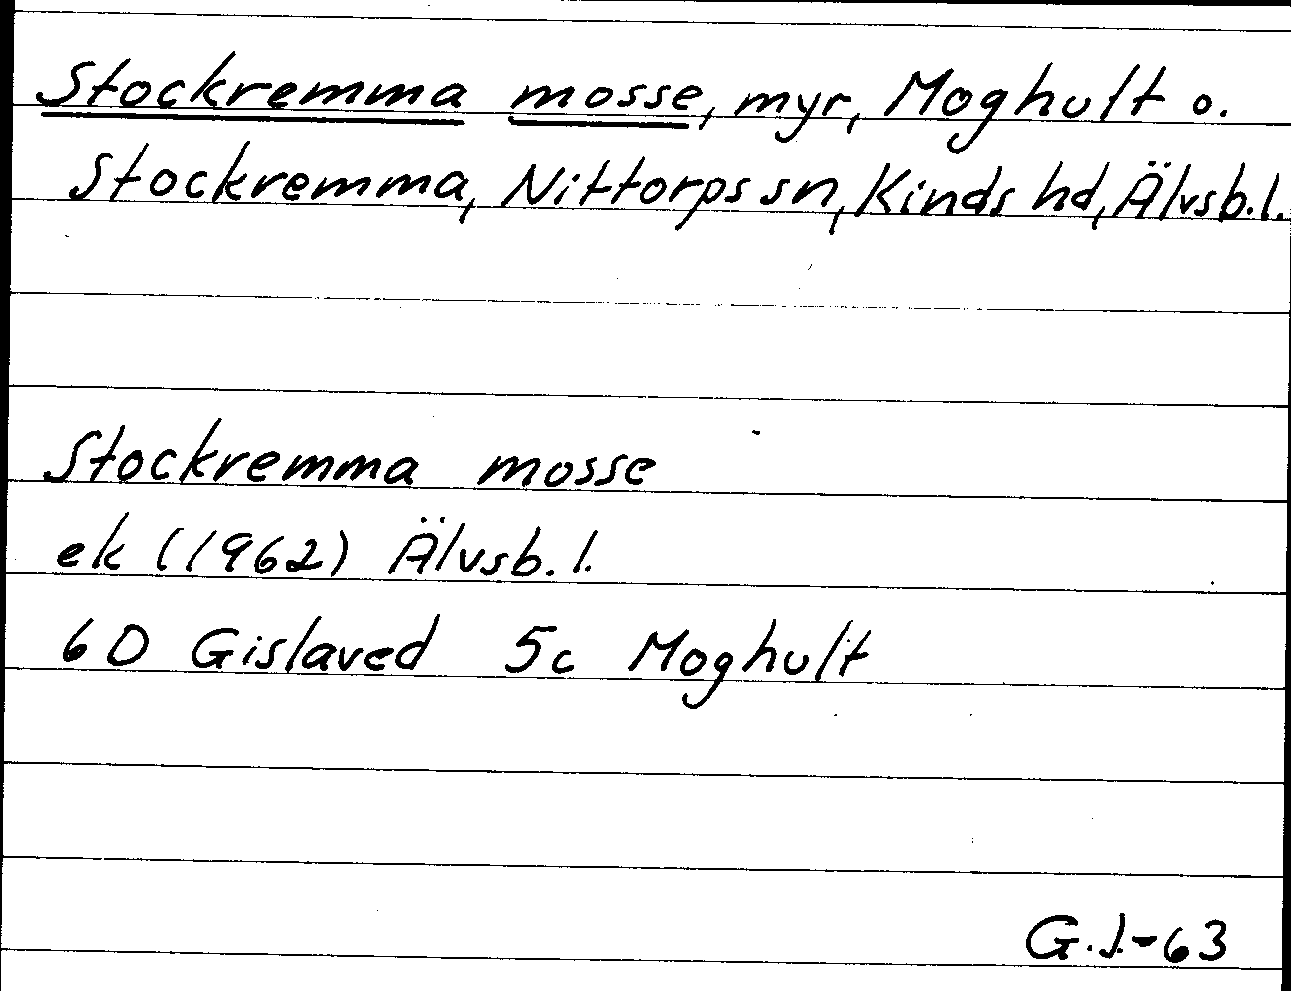 Stockremma mosse, myr, Moghult o.
Stockremma, Nittorps sn, Kinds hd, Älvsb.l.
Stockremma mosse
ek (1962) Älvsb. l.
6D Gislaved 5c Moghult
G.J.-63